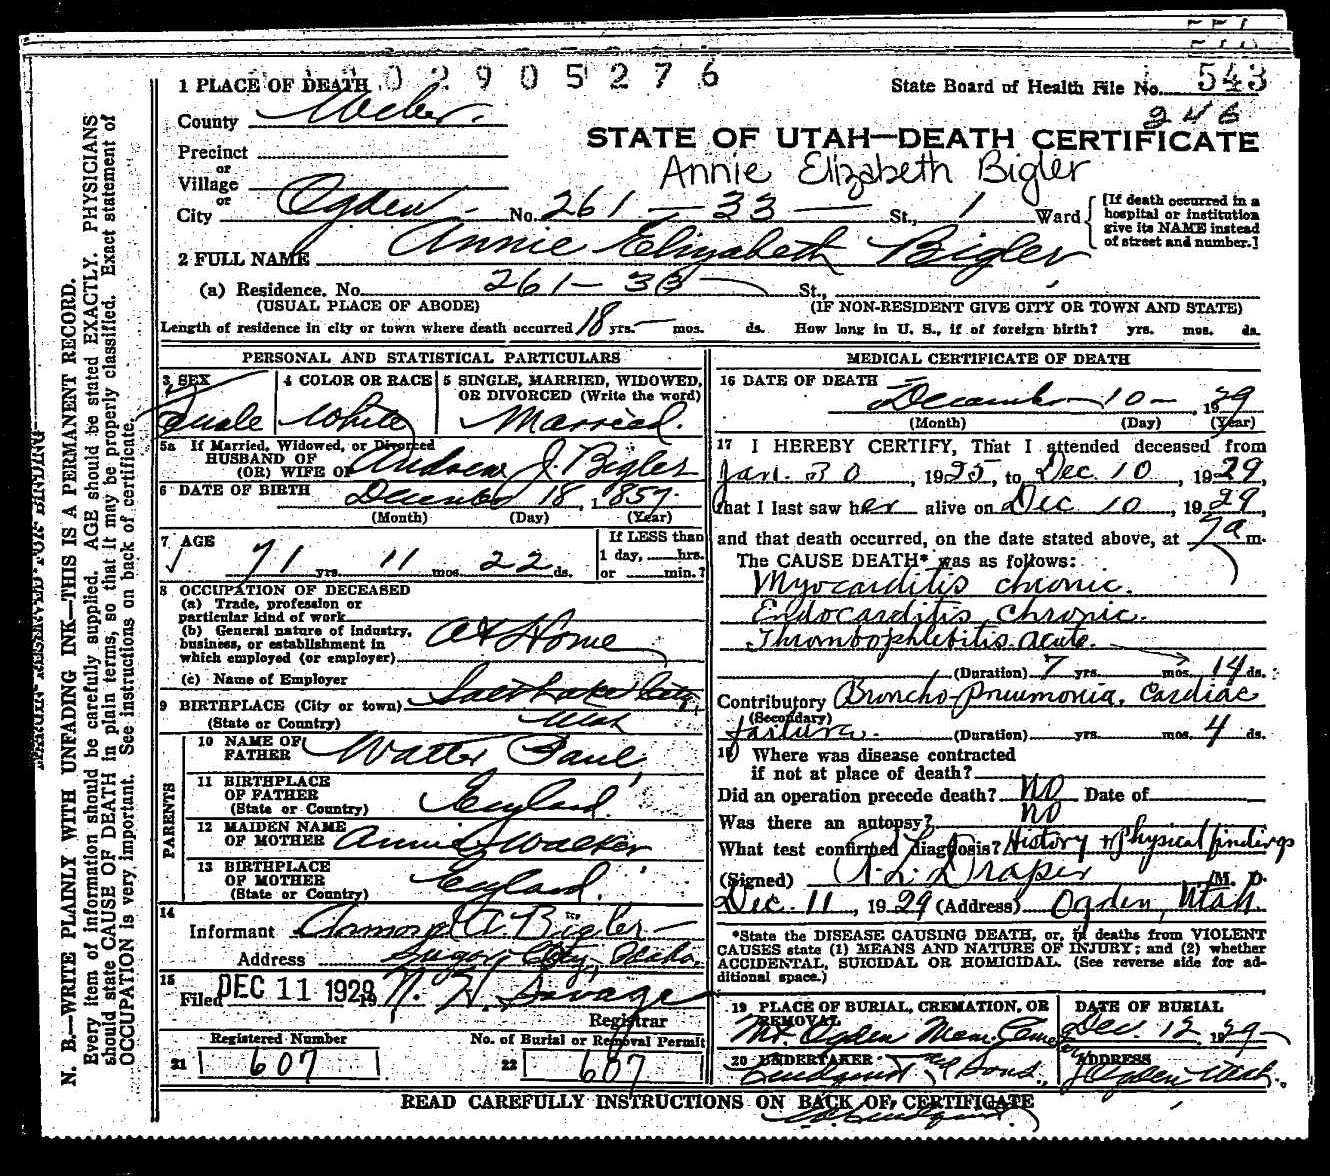 1 PLACE OF DEATH 02905276
State Board of Health File No. 543
County Weber.
246
STATE OF UTAH—DEATH CERTIFICATE
Precinct
or
Village
Annie Elizabeth Bigler
or
City Ogden No. 261 — 33 — St., 1 Ward
[If death occurred in a hospital or institution give its NAME instead of street and number.]
2 FULL NAME Annie Elizabeth Bigler
(a) Residence. No. 261 — 33 St.,
(USUAL PLACE OF ABODE) (IF NON-RESIDENT GIVE CITY OR TOWN AND STATE)
Length of residence in city or town where death occurred 18 yrs. — mos. ds. How long in U. S., if of foreign birth? yrs. mos. ds.
PERSONAL AND STATISTICAL PARTICULARS
3 SEX 4 COLOR OR RACE 5 SINGLE, MARRIED, WIDOWED,
OR DIVORCED (Write the word)
Female White Married.
5a If Married, Widowed, or Divorced
HUSBAND OF
(OR) WIFE OF Andrew J. Bigler
6 DATE OF BIRTH December 18, 1857.
(Month) (Day) (Year)
7 AGE 71 yrs. 11 mos. 22 ds.
If LESS than
1 day, hrs.
or min.?
8 OCCUPATION OF DECEASED
(a) Trade, profession or
particular kind of work
(b) General nature of industry,
business, or establishment in
which employed (or employer) At Home
(c) Name of Employer
9 BIRTHPLACE (City or town) Salt Lake City,
(State or Country) Utah
PARENTS
10 NAME OF
FATHER Walter Paul,
11 BIRTHPLACE
OF FATHER
(State or Country) England.
12 MAIDEN NAME
OF MOTHER Annie Walker
13 BIRTHPLACE
OF MOTHER
(State or Country) England.
14
Informant A. Bigler
Address Sugar City, Idaho.
15
Filed DEC 11 1929 19 N. H. Savage
Registrar
Registered Number No. of Burial or Removal Permit
21 607 22 607
MEDICAL CERTIFICATE OF DEATH
16 DATE OF DEATH December 10 — , 1929
(Month) (Day) (Year)
17 I HEREBY CERTIFY, That I attended deceased from
Jan. 30, 1925, to Dec. 10, 1929,
that I last saw her alive on Dec 10, 1929,
and that death occurred, on the date stated above, at 7 a m.
The CAUSE DEATH* was as follows:
Myocarditis chronic.
Endocarditis, chronic.
Thrombophlebitis, acute.
(Duration) 7 yrs. mos. 14 ds.
Contributory Broncho-pneumonia, Cardiac
(Secondary)
failure. (Duration) yrs. mos. 4 ds.
18 Where was disease contracted
if not at place of death?
Did an operation precede death? No Date of
Was there an autopsy? no
What test confirmed diagnosis? History & Physical findings
(Signed) R. L. Draper M. D.
Dec. 11, 1929 (Address) Ogden, Utah.
*State the DISEASE CAUSING DEATH, or, in deaths from VIOLENT
CAUSES state (1) MEANS AND NATURE OF INJURY; and (2) whether
ACCIDENTAL, SUICIDAL OR HOMICIDAL. (See reverse side for ad-
ditional space.)
19 PLACE OF BURIAL, CREMATION, OR
REMOVAL DATE OF BURIAL
Mt. Ogden Mem. Cemetery Dec. 12, 1929
20 UNDERTAKER ADDRESS
Lindquist & Sons., Ogden Utah.
READ CAREFULLY INSTRUCTIONS ON BACK OF CERTIFICATE
N. B.—WRITE PLAINLY WITH UNFADING INK—THIS IS A PERMANENT RECORD.
Every item of information should be carefully supplied. AGE should be stated EXACTLY. PHYSICIANS
should state CAUSE OF DEATH in plain terms, so that it may be properly classified. Exact statement of
OCCUPATION is very important. See instructions on back of certificate.
MARGIN RESERVED FOR BINDING